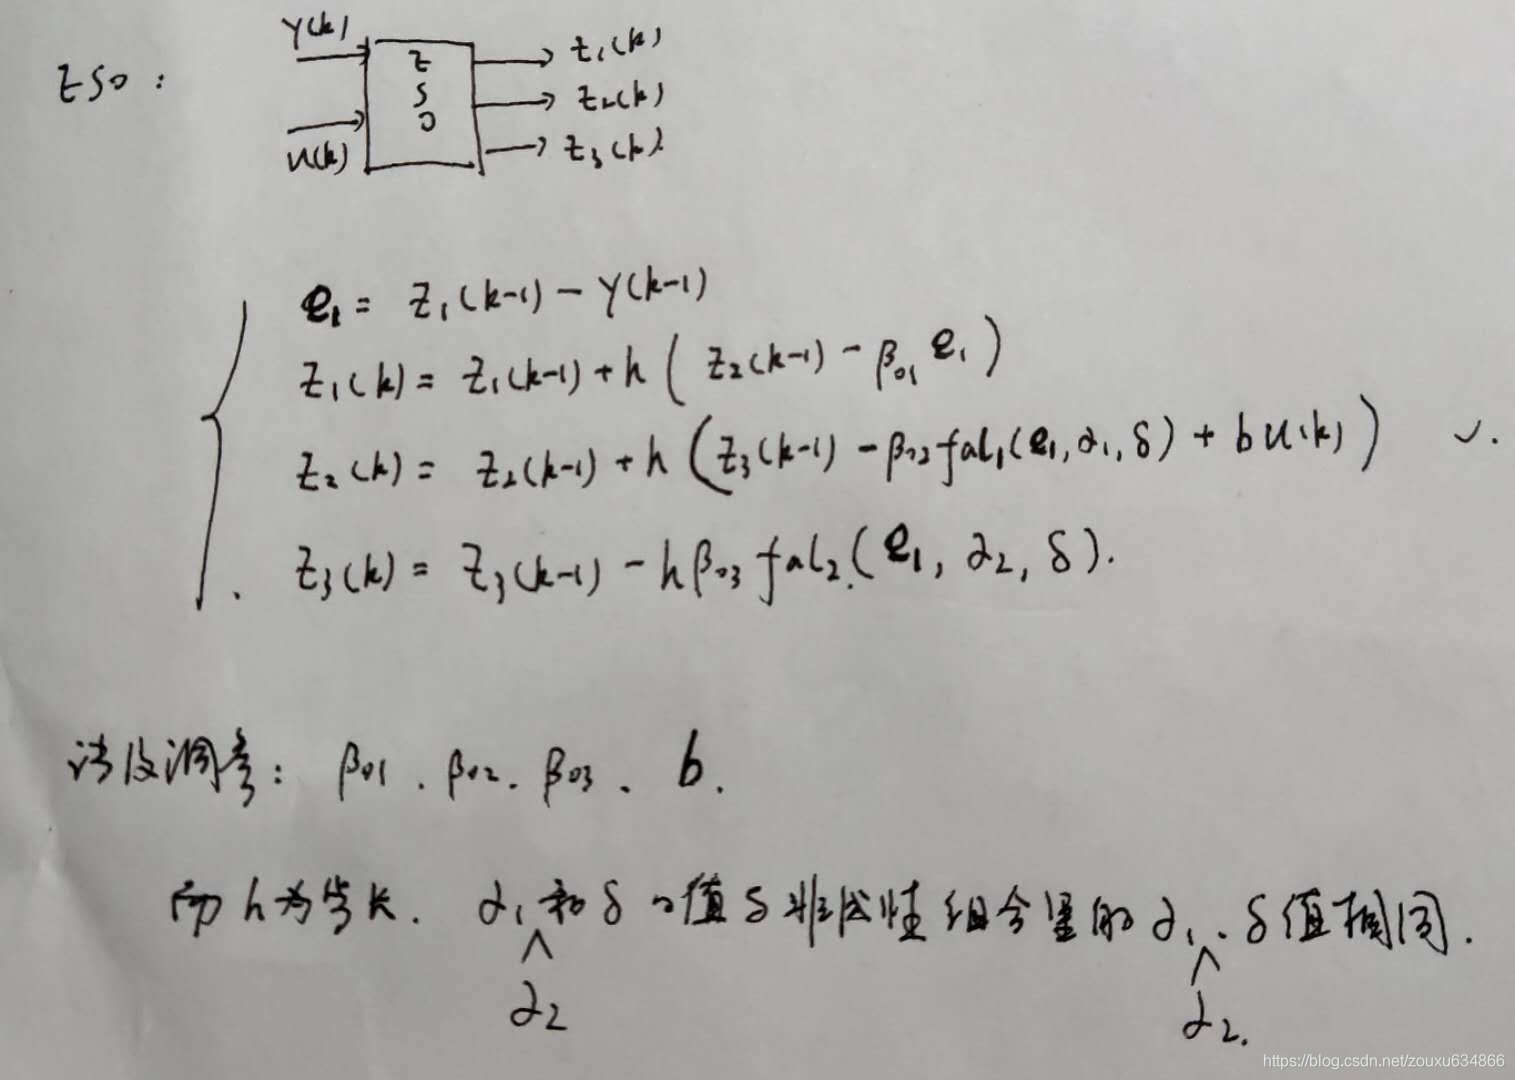 y(k)
ESO：
ESO
z₁(k)
z₂(k)
u(k)
z₃(k)
e₁ = z₁(k-1) - y(k-1)
z₁(k) = z₁(k-1) + h ( z₂(k-1) - β₀₁ e₁ )
z₂(k) = z₂(k-1) + h ( z₃(k-1) - β₀₂ fal₁(e₁, α₁, δ) + b u(k) ) ✓.
z₃(k) = z₃(k-1) - h β₀₃ fal₂(e₁, α₂, δ).
涉及调参： β₀₁ . β₀₂ . β₀₃ . b .
而 h 为步长. α₁ 和 δ 的值与非线性组合里的 α₁ . δ 值相同.
∧ ∧
α₂ α₂.
https://blog.csdn.net/zouxu634866